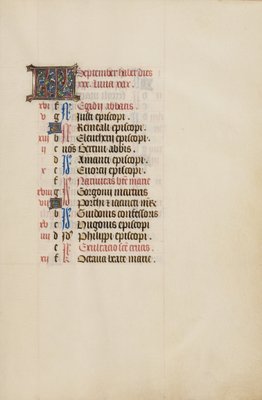 KL September habet dies
xxx. Luna xxx.
xvi f Egidii abbatis.
v g Justi episcopi.
Remcali episcopi.
xiii b Eleutherii episcopi.
ii c nōs Bertini abbis.
d Amanti episcopi.
x e Euorcii episcopi.
f Natiuitas bte marie
xviii g Gorgonii martiris
vii Prothi et iacincti mr̄
c Guidonis confessoris
xv c Hugonis episcopi
iiii d Philippi episcopi.
e Exultacio sce crucis.
xii f Octaua beate marie.